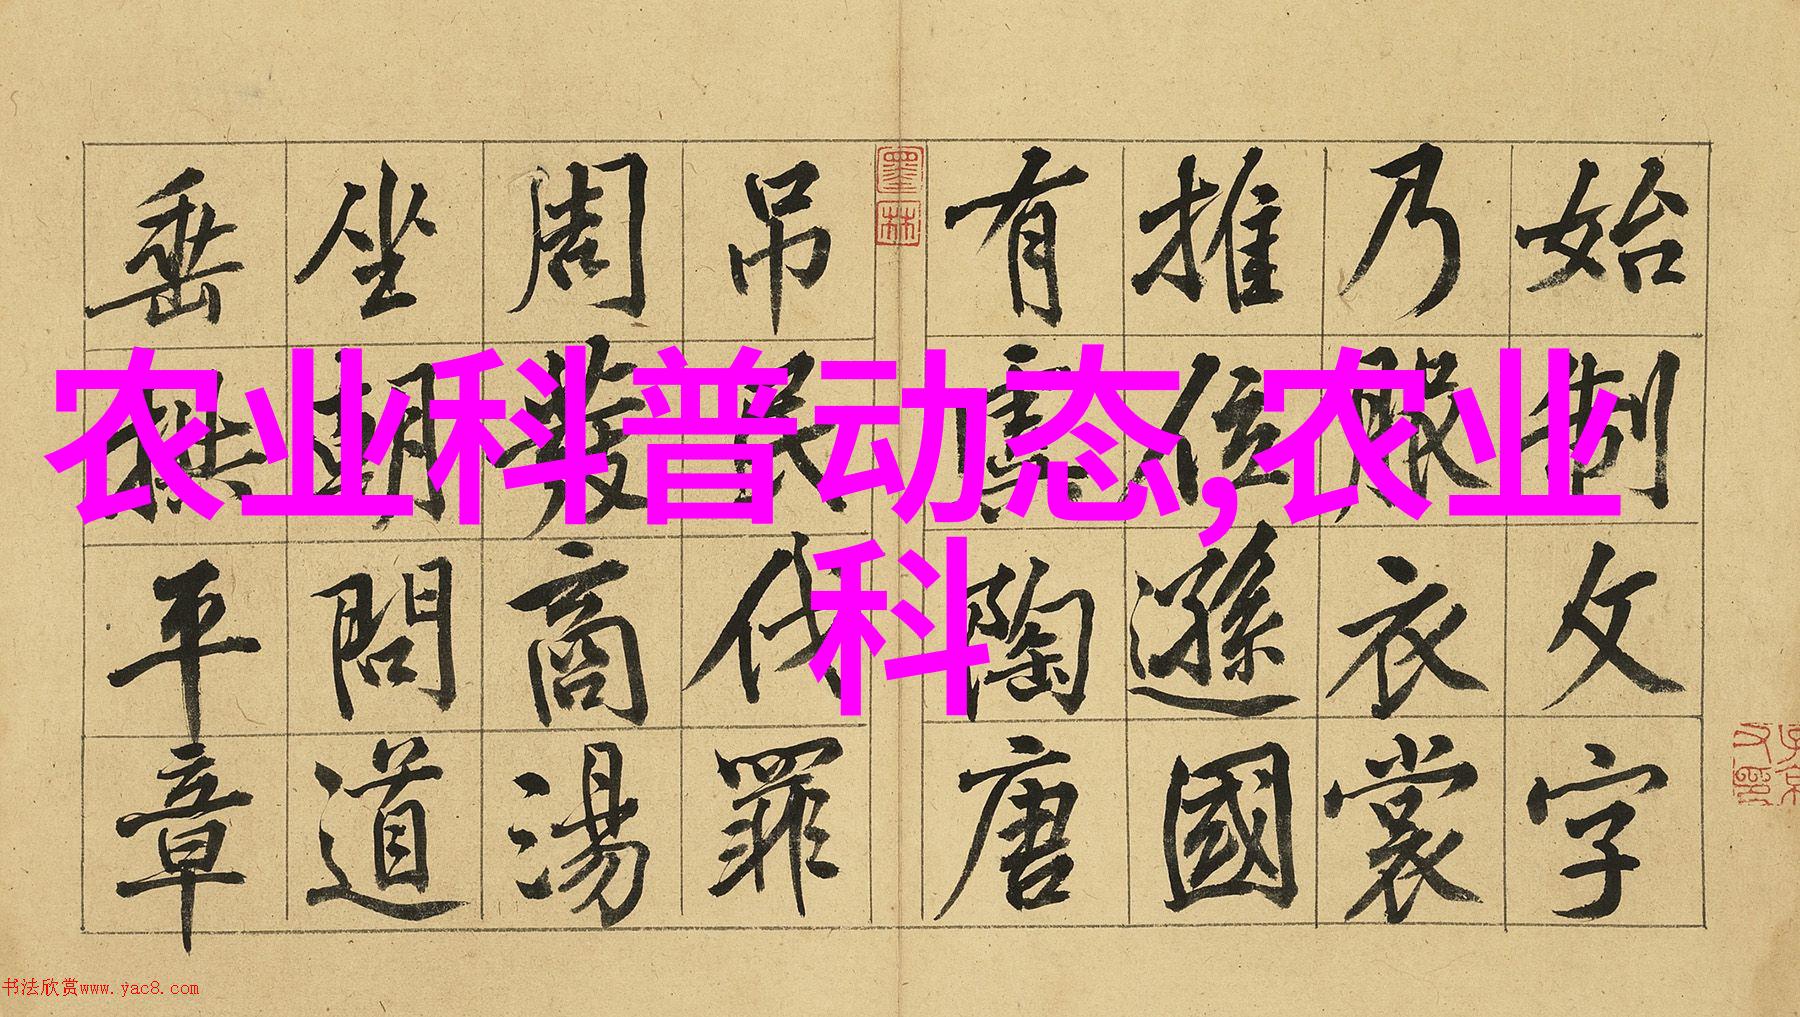 农业科普动态,农业
科
始制文字
乃服衣裳
推位遜國
有虞陶唐
吊民伐罪
周發商湯
坐朝問道
垂拱平章
墨林
书法欣赏www.yac8.com